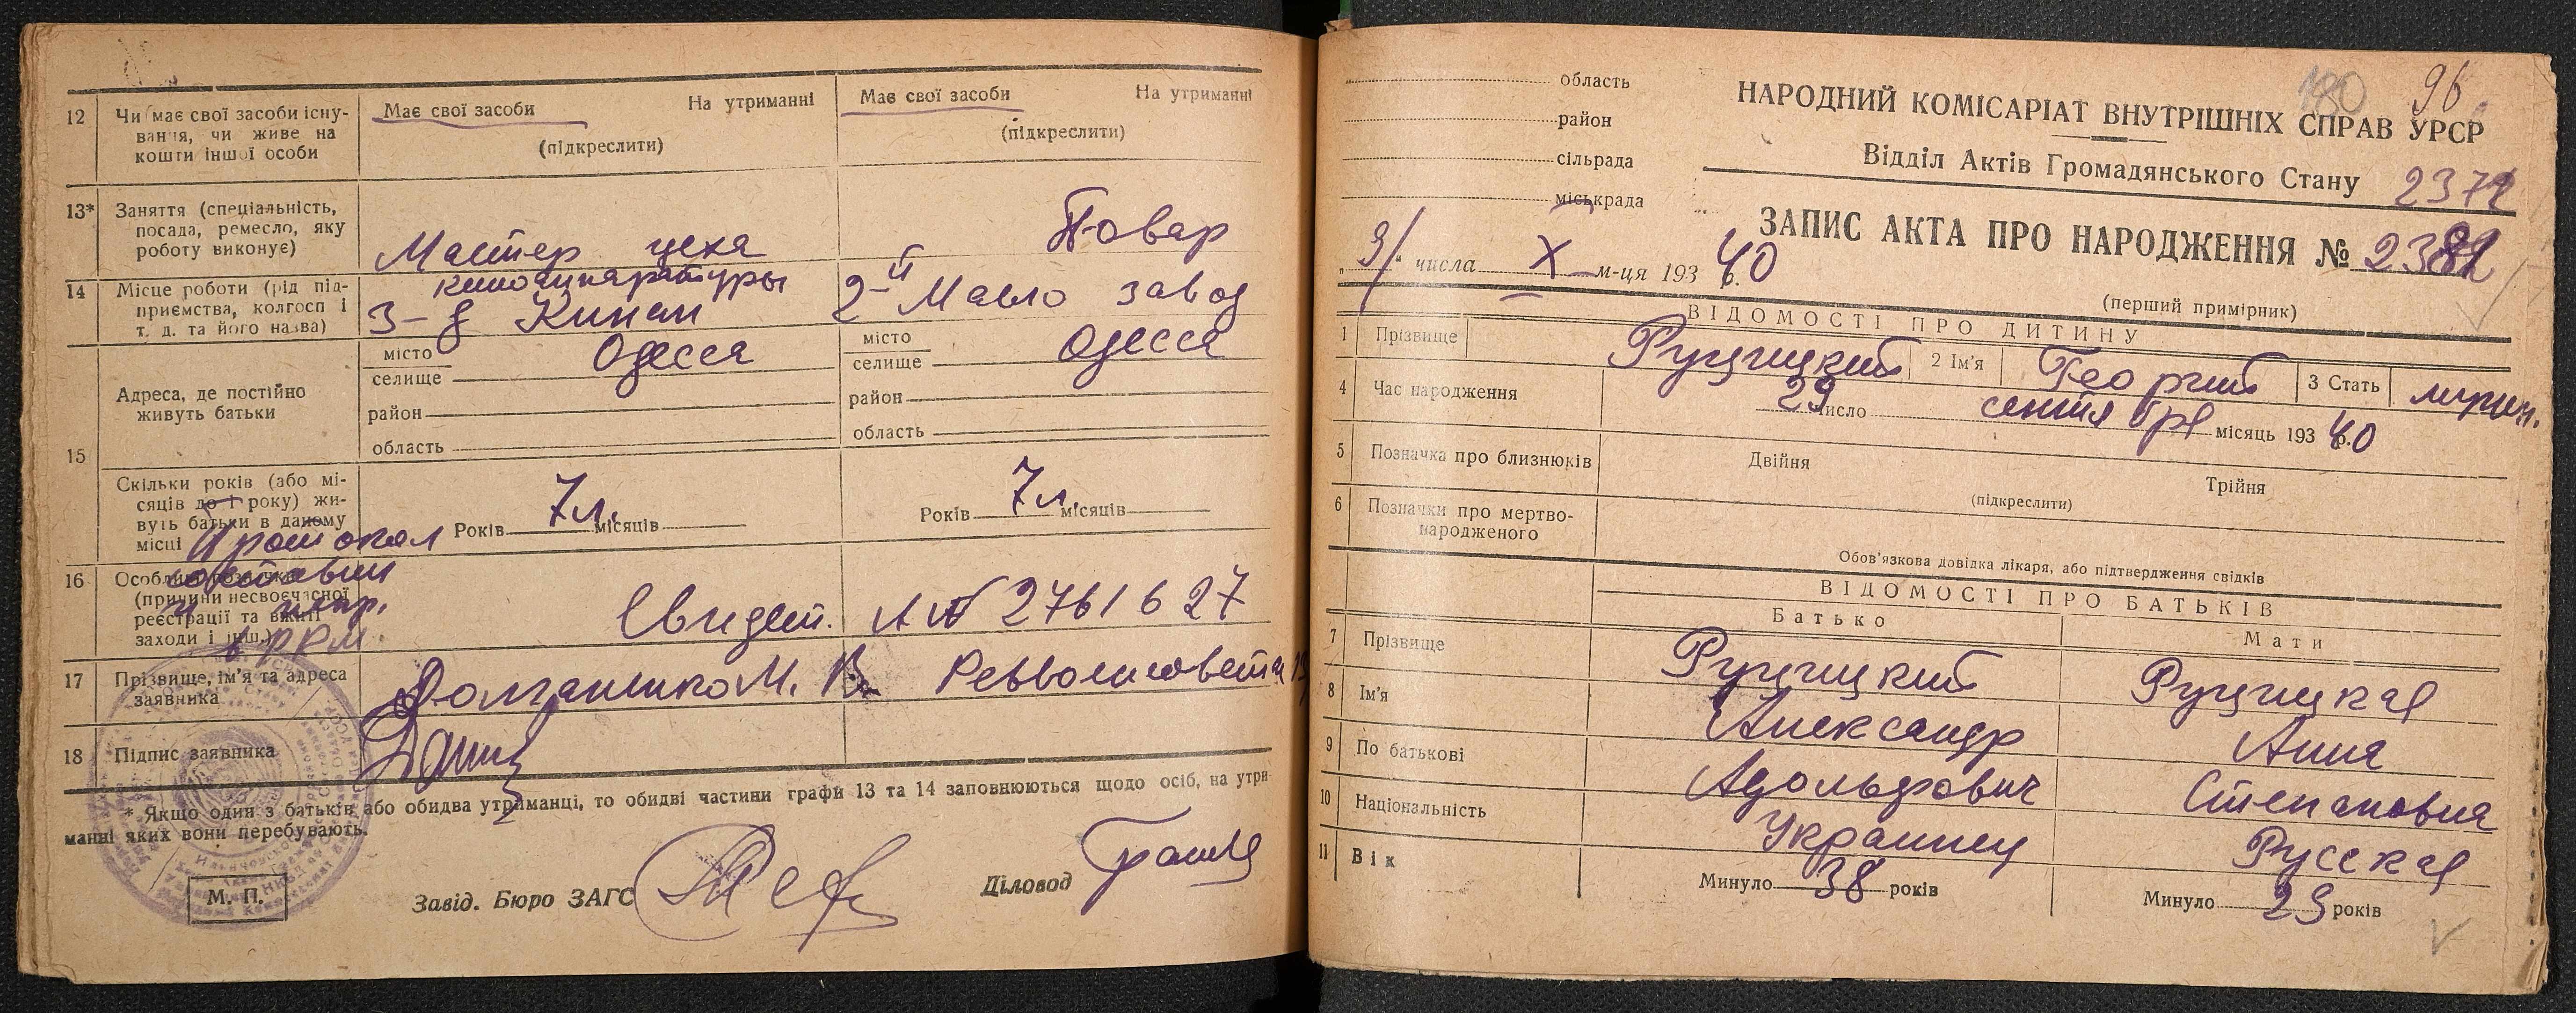 12 Чи має свої засоби існу-
вання, чи живе на
кошти іншої особи
Має свої засоби На утриманні
(підкреслити)
Має свої засоби На утриманні
(підкреслити)
13* Заняття (спеціальність,
посада, ремесло, яку
роботу виконує)
Мастер цеха
киноаппаратуры
Повар
14 Місце роботи (рід під-
приємства, колгосп і
т. д. та його назва)
З-д Кинап
2-й Масло завод
15 Адреса, де постійно
живуть батьки
місто Одесса
селище
район
область
місто Одесса
селище
район
область
Скільки років (або мі-
сяців до 1 року) жи-
вуть батьки в даному
місці
Років 7 л. місяців
Років 7 л. місяців
Протокол
составлен
и напр.
в РКМ.
16 Особливі позначки
(причини несвоєчасної
реєстрації та вжиті
заходи і інш.)
Свидет. № 2761627
17 Прізвище, ім'я та адреса
заявника
М. В.
18 Підпис заявника
* Якщо один з батьків або обидва утриманці, то обидві частини графи 13 та 14 заповнюються щодо осіб, на утри-
манні яких вони перебувають.
М. П.
Завід. Бюро ЗАГС
Діловод
180 96
область
район
сільрада
міськрада
НАРОДНИЙ КОМІСАРІАТ ВНУТРІШНІХ СПРАВ УРСР
Відділ Актів Громадянського Стану
ЗАПИС АКТА ПРО НАРОДЖЕННЯ №
„ “ числа X м-ця 193 40 р.
(перший примірник)
ВІДОМОСТІ ПРО ДИТИНУ
1 Прізвище Рущицкий 2 Ім'я Георгий 3 Стать мужч.
4 Час народження 29 число сентября місяць 193 40 р.
5 Позначка про близнюків Двійня Трійня
(підкреслити)
6 Позначки про мертво-
народженого
Обов'язкова довідка лікаря, або підтвердження свідків
ВІДОМОСТІ ПРО БАТЬКІВ
Батько Мати
7 Прізвище Рущицкий Рущицкая
8 Ім'я Александр Анна
9 По батькові Адольфович Степановна
10 Національність Украинец Русская
11 Вік Минуло 38 років Минуло 29 років